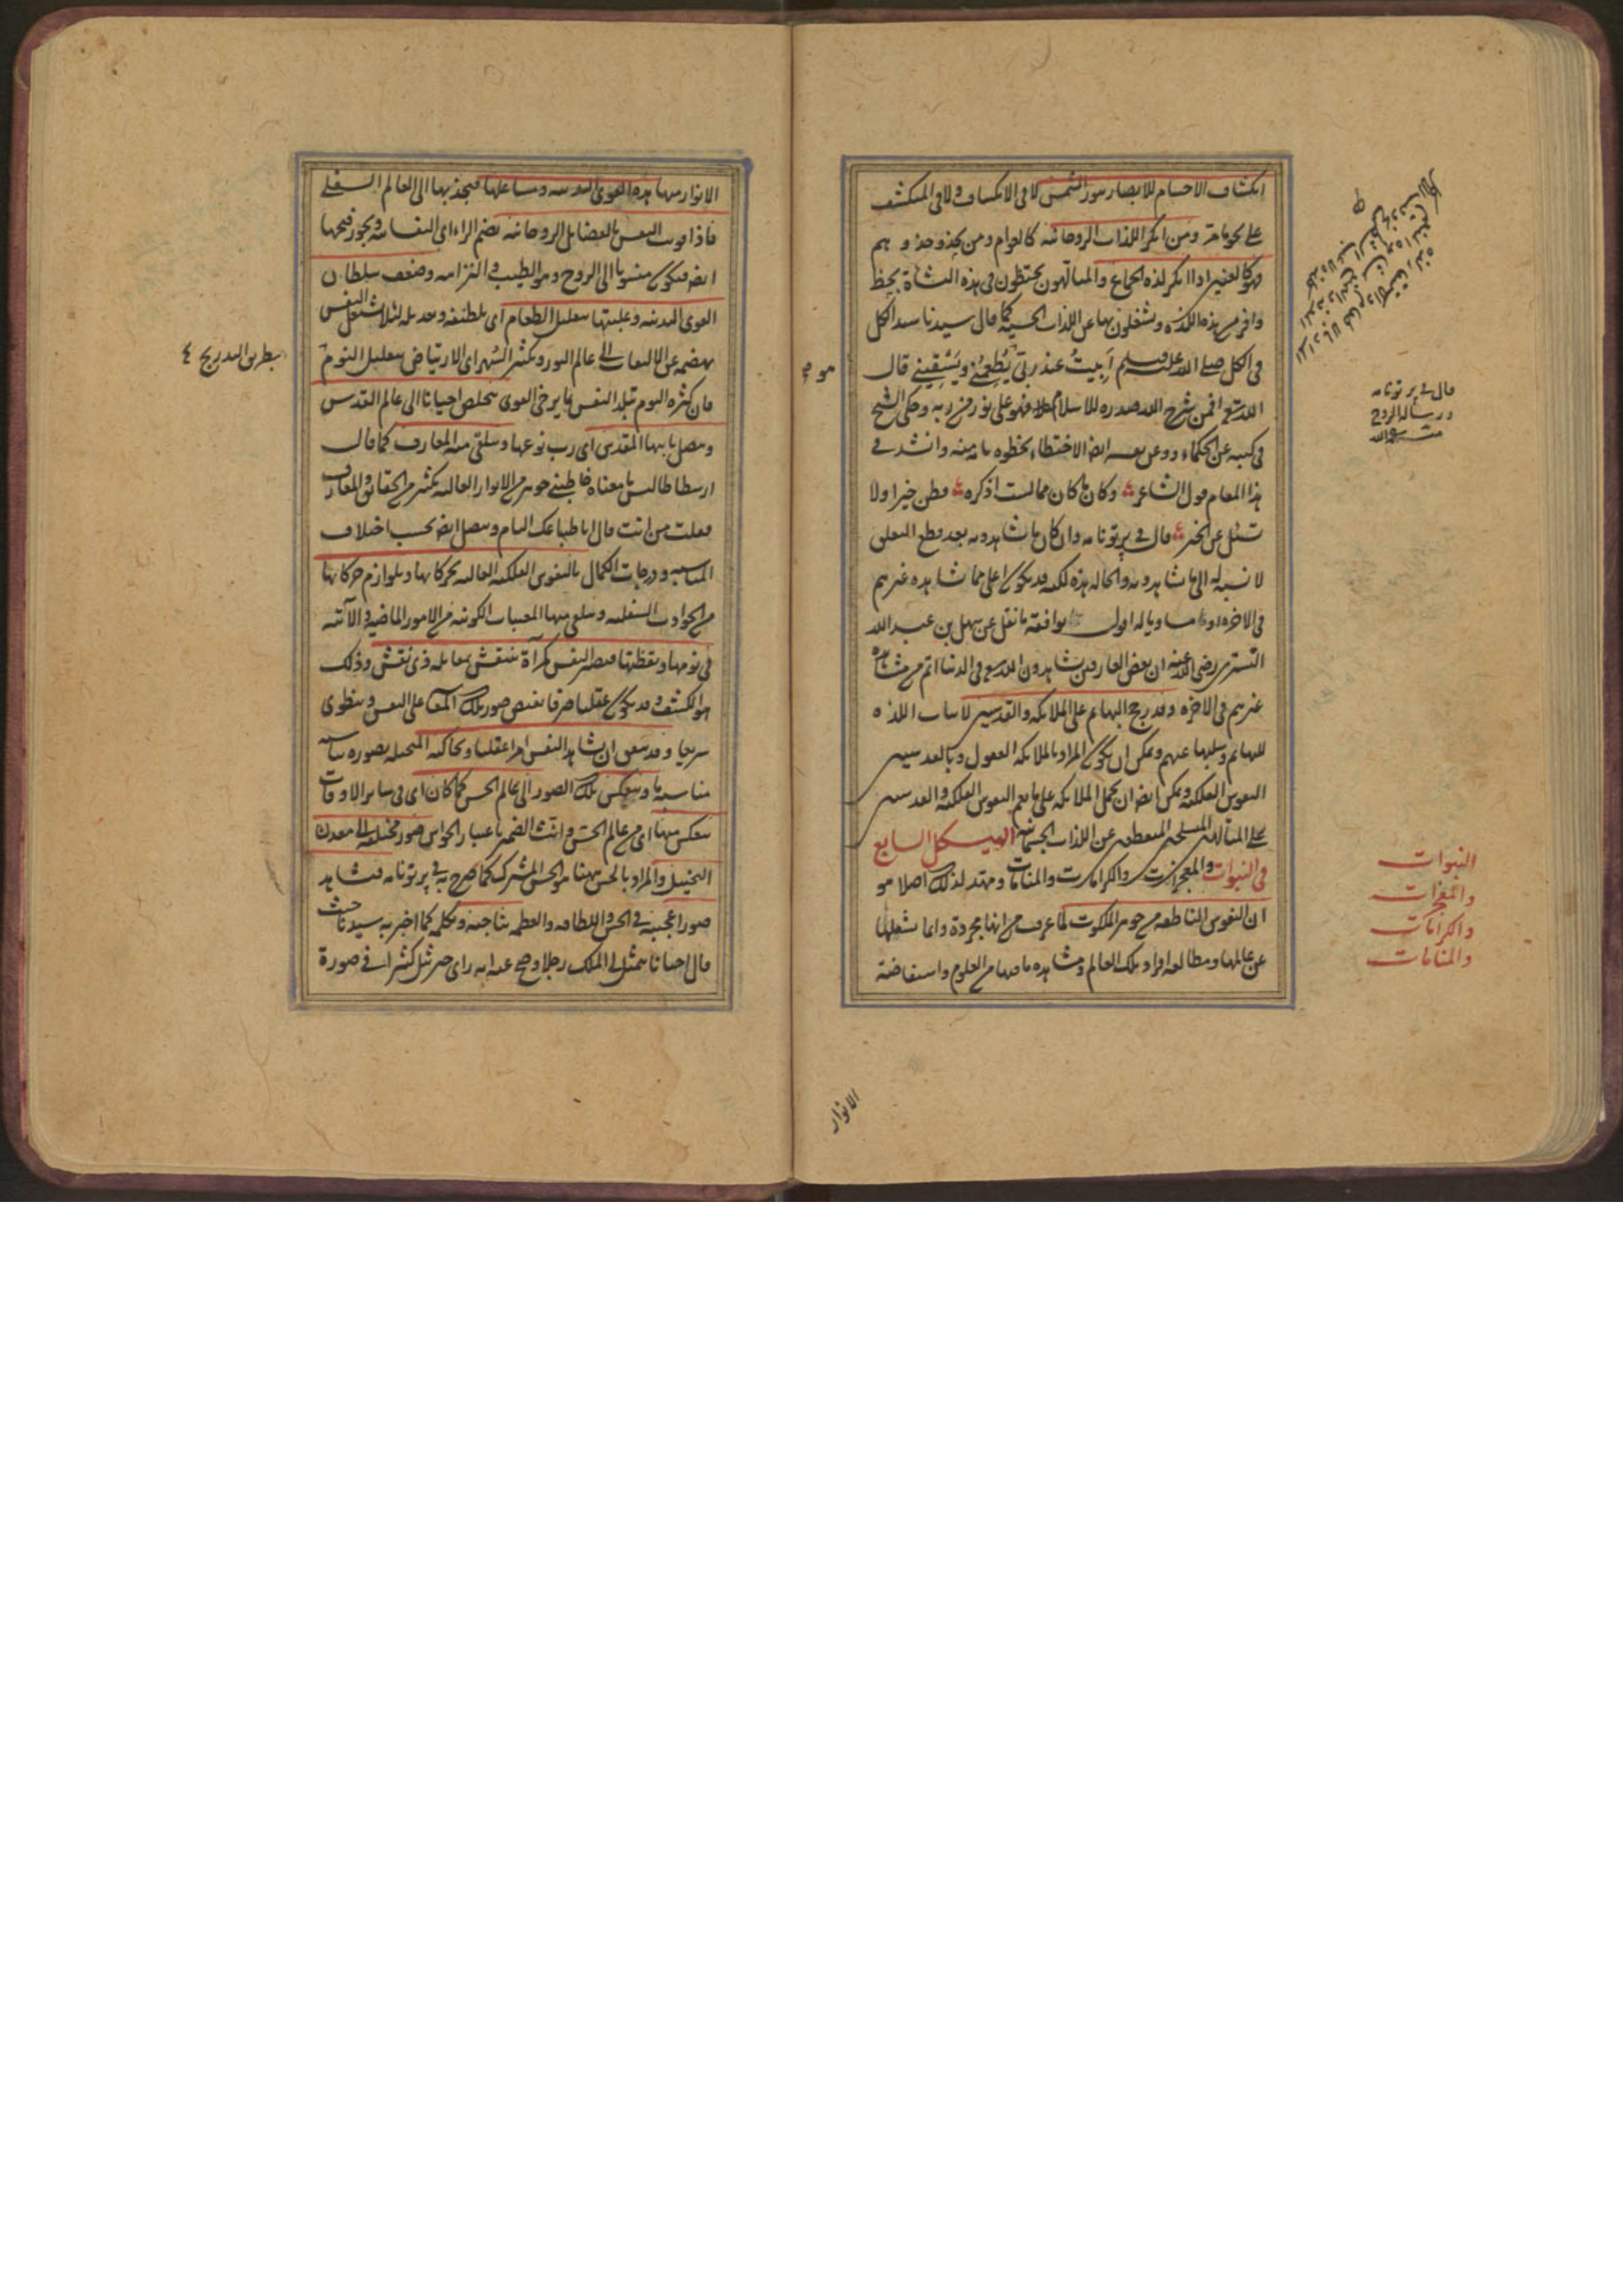 انكشاف الاجسام للابصار بنور الشمس لا فى الانكساف ولا فى المنكشف
على نحو ما مر ومن انكر اللذات الروحانية كالعوام ومن يحذو حذوهم
فهو كالعنين اذا انكر لذة الجماع والمتألهون يحتظون فى هذه النشاة بحظ
وافر من هذه اللذة ويشغلون بها عن اللذات الحسية كما قال سيدنا سيد الكل
فى الكل صلى الله عليه وسلم أبيت عند ربى يطعمنى ويسقينى قال
الله تعالى افمن شرح الله صدره للاسلام فهو على نور من ربه وحكى الشيخ
فى كتبه عن الحكماء وعن نفسه ايضا الاحتظاء بحظوة تامة منه وانشد فى
هذا المقام قول الشاعر وكان ما كان مما لست اذكره فظن خيرا ولا
تسئل عن الخبر قال فى پرتونامه وان كان ما يشاهدونه بعد قطع التعلق
لا نسبة له الى ما يشاهدونه والحالة هذه لكنه قد يكون اعلى مما يشاهده غيرهم
فى الاخرة او مساويا له اقول يوافقه ما نقل عن سهل بن عبد الله
التسترى رضى الله عنه ان بعض العارفين يشاهدون الله تعالى فى الدنيا اتم من مشاهدة
غيرهم فى الاخرة وقد رجح البهائم على الملائكة والقديسين لاثبات اللذة
للبهائم وسلبها عنهم ويمكن ان يكون المراد بالملائكة العقول وبالقديسين
النفوس الفلكية ويمكن ايضا ان يحمل الملائكة على ما يعم النفوس الفلكية والقديسين
على المتألهين المنسلخين المنقطعين عن اللذات الجسمانية الهيكل السابع
فى النبوات والمعجزات والكرامات والمنامات ومهد لذلك اصلا هو
ان النفوس الناطقة من جوهر الملكوت لما عرفت من انها مجردة وانما يشغلها
عن عالمها ومطالعة افراد تلك العالم ومشاهدة ما فيها من العلوم واستفاضة
قال فى پرتونامه
النبوات
والمعجزات
والكرامات
والمنامات
الانوار
الانوار منها هذه القوى البدنية ومشاغلها فيجذبها الى العالم السفلى
فاذا قويت النفس بالفضائل الروحانية بضم الراء اى النفسانية ويجوز فتحها
ايضا فيكون منسوبا الى الروح وهو الطيب والنزاهة وضعف سلطان
القوى البدنية وغلبتها بتقليل الطعام اى بلطيفه وتعديله لئلا يشتغل النفس
بهضمه عن الالتفات الى عالم النور وتكثير السهر اى الارتياض بتقليل النوم
فان كثرة النوم تبلد النفس بما يرخى القوى تتخلص احيانا الى عالم القدس
وتتصل بابيها المقدس اى رب نوعها وتتلقى منه المعارف كما قال
ارسطاطاليس ما معناه خاطبنى جوهر من الانوار العالية بكثير من الحقائق والمعارف
فقلت من انت قال انا طباعك التام وتتصل ايضا بحسب اختلاف
المناسبة ودرجات الكمال بالنفوس الفلكية العالمة بحركاتها وبلوازم حركاتها
من الحوادث السفلية وتتلقى منها المغيبات الكونية من الامور الماضية والآتية
فى نومها ويقظتها فتصير النفس كمرآة تنتقش بمقابلة ذى نقش وذلك
هو الكشف وقد يكون عقليا صرفا تفيض صور تلك المعانى على النفس وينطوى
سريعا وقد يتفق ان تشاهد النفس امرا عقليا وتحاكيه المتخيلة بصورة
مناسبة وينعكس تلك الصور الى عالم الحس كما كان اى فى سائر الاوقات
ينعكس منها اى من عالم الحس وانث الضمير باعتبار الحواس صور مختلفة الى معدن
التخيل والمراد بالحس ههنا هو الحس المشترك كما صرح به فى پرتونامه فتشاهد
صورا عجيبة فى الحسن واللطافة والعظمة تناجيه وتكلمه كما اخبر به سيدنا حيث
قال احيانا يتمثل لى الملك رجلا وصح عنه انه راى جبرئيل كثيرا فى صورة
بطريق التدريج